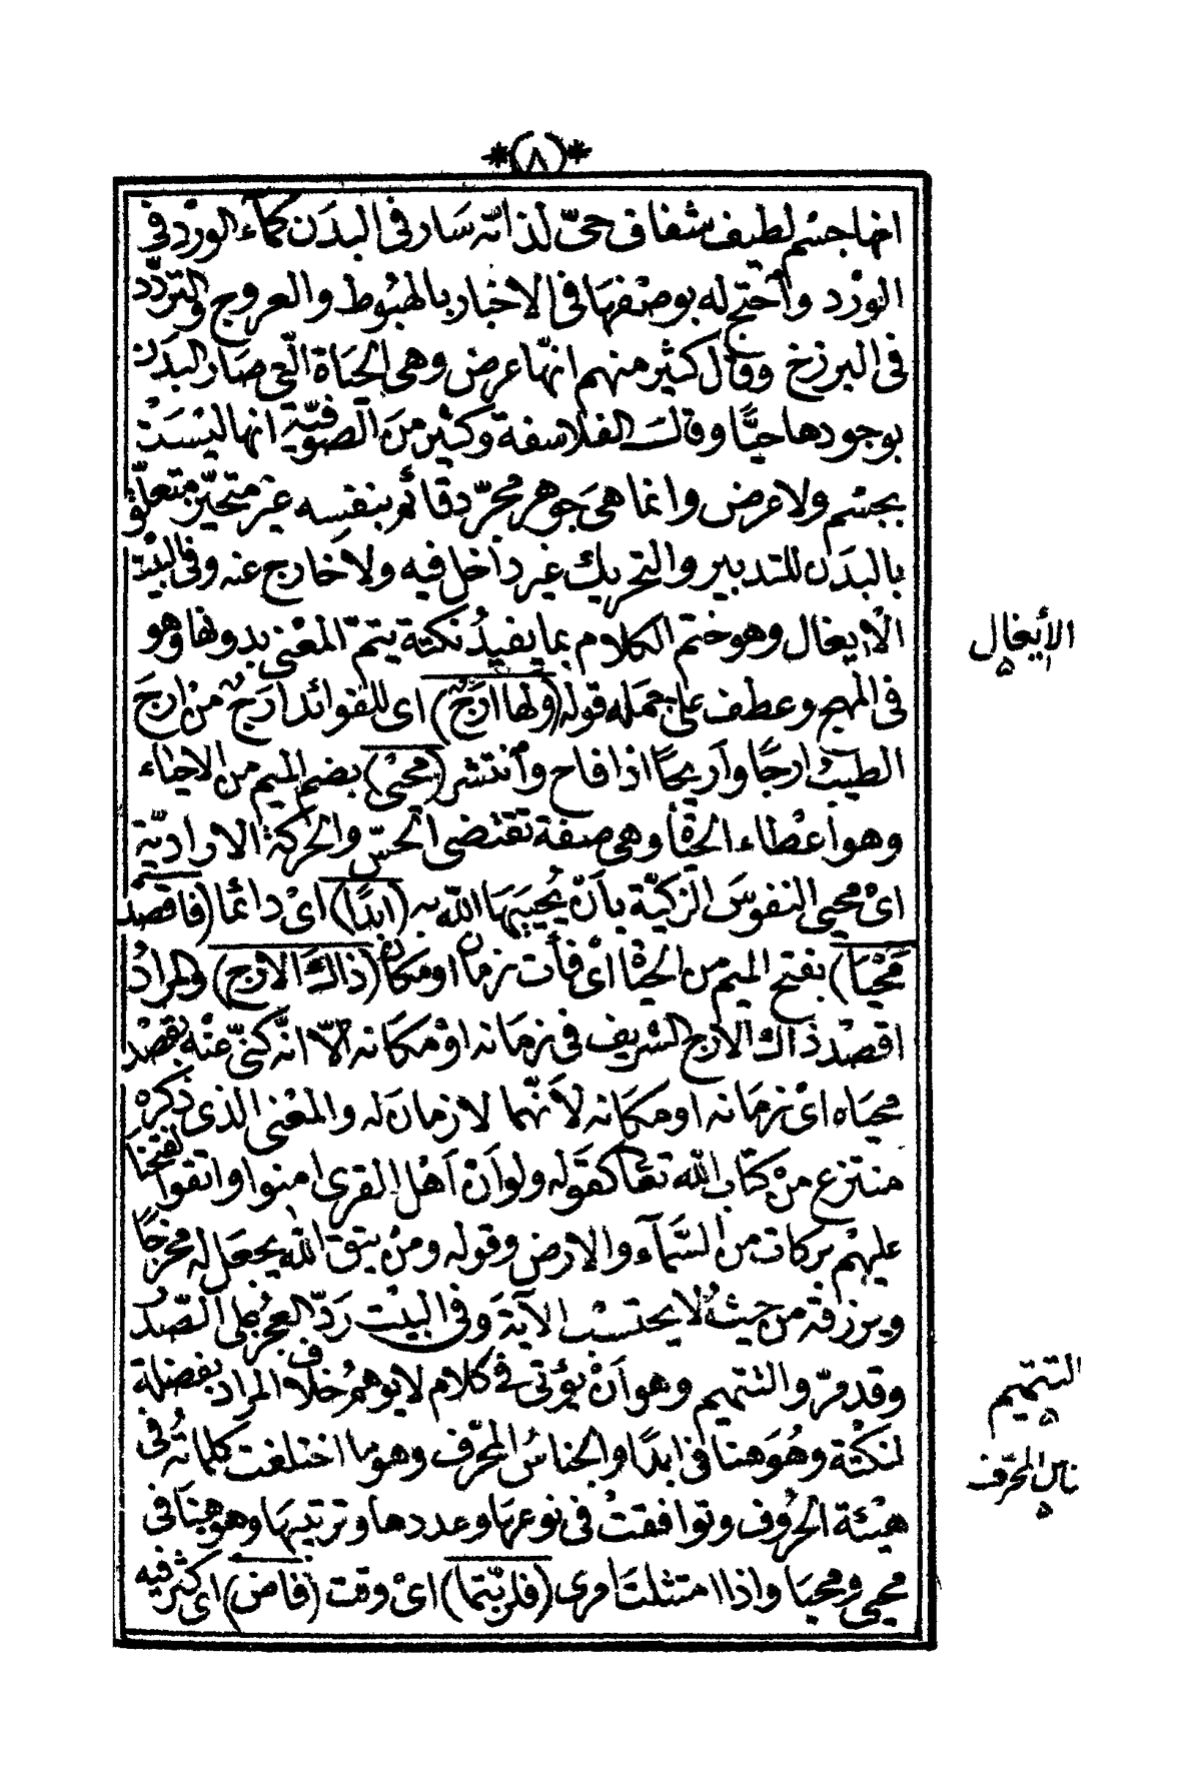 *(٨)*
انها جسْم لطيف شفاف حىّ لذاتّه سَار فى البدَن كمآء الورْد فى
الورْد واُحتج له بوصْفهَا فى الاخبار بالهبُوط والعروج والتردّد
فى البرزخ وقال كثير منهم انهّا عرض وهى الحيَاة الّتى صَار البدَن
بوجودها حيًّا وقالت الفلاسفة وكثير من الصّوفيّة انها ليْسَتْ
بجسْم ولا عرض وانما هىَ جوهر مجرّد قائم بنفسِه غيْر متحيّز متعلّق
بالبدَن للتدبير والتحريك غير داخل فيه ولا خارج عنه وفى البيْت
الْاِيغال وهو ختم الكلام بما يفيدُ نكتة يتمّ المعْنى بدونها وهو
فى المهج وعطف على جمله قوله (ولها ارَجٌ) اى للفوائد ارَجٌ من ارِجَ
الطيْبُ ارجًا وأريجًا اذا فاح وانتشر (محيْى) بضم الميم من الاحياء
وهو اعْطاء الحيٰوة وهى صفة تقتضى الحسّ والحركة الاراديّة
اىْ محيى النفوسَ الزكيّة بأنْ يُحييَهَا اللّه به (ابدًا) اىْ دائما (فاقصدْ
مَحْيَا) بفتح الميم من الحيٰوة اىْ فأت زمان او مكان (ذاكَ الارج) والمرادُ
اقصدْ ذاك الارج الشريف فى زمَانه اوْ مكَانه الّا انَّه كنّى عنْه بقصْد
محيَاه اىْ زمَانه او مكَانه لأنّهما لازمان له والمعْنى الذى ذكره
منتزع منْ كتاب اللّه تعالى كقوله ولو انّ اَهْل القرى امنوا واتقوا لفتحنا
عليهْم بركات من السَّمآء والارض وقوله ومنْ يتق اللّه يجعَل له مخرجًا
ويرزقه من حيْثُ لا يحتسبْ الآية وفى البيْت رَدّ العجُز على الصّدر
وقد مرّ والتتميم وهو اَنْ يؤتى فى كلام لا يوهمُ خلاف المراد بفضلة
لنكْتة وهُوَ هنا فى ابدًا والجناسُ المحرّف وهو ما اختلفت كلماتهُ فى
هيْئة الحرُوف وتوافقتْ فى نوعهَا وعددها وترتيبهَا وهو هنَا فى
محيى ومحيَا واذا امتثلتَ امرى (فلربّتما) اىْ وقت (فاض) اى كثر فيه
الأيغال
التتميم
ناس المحرّف